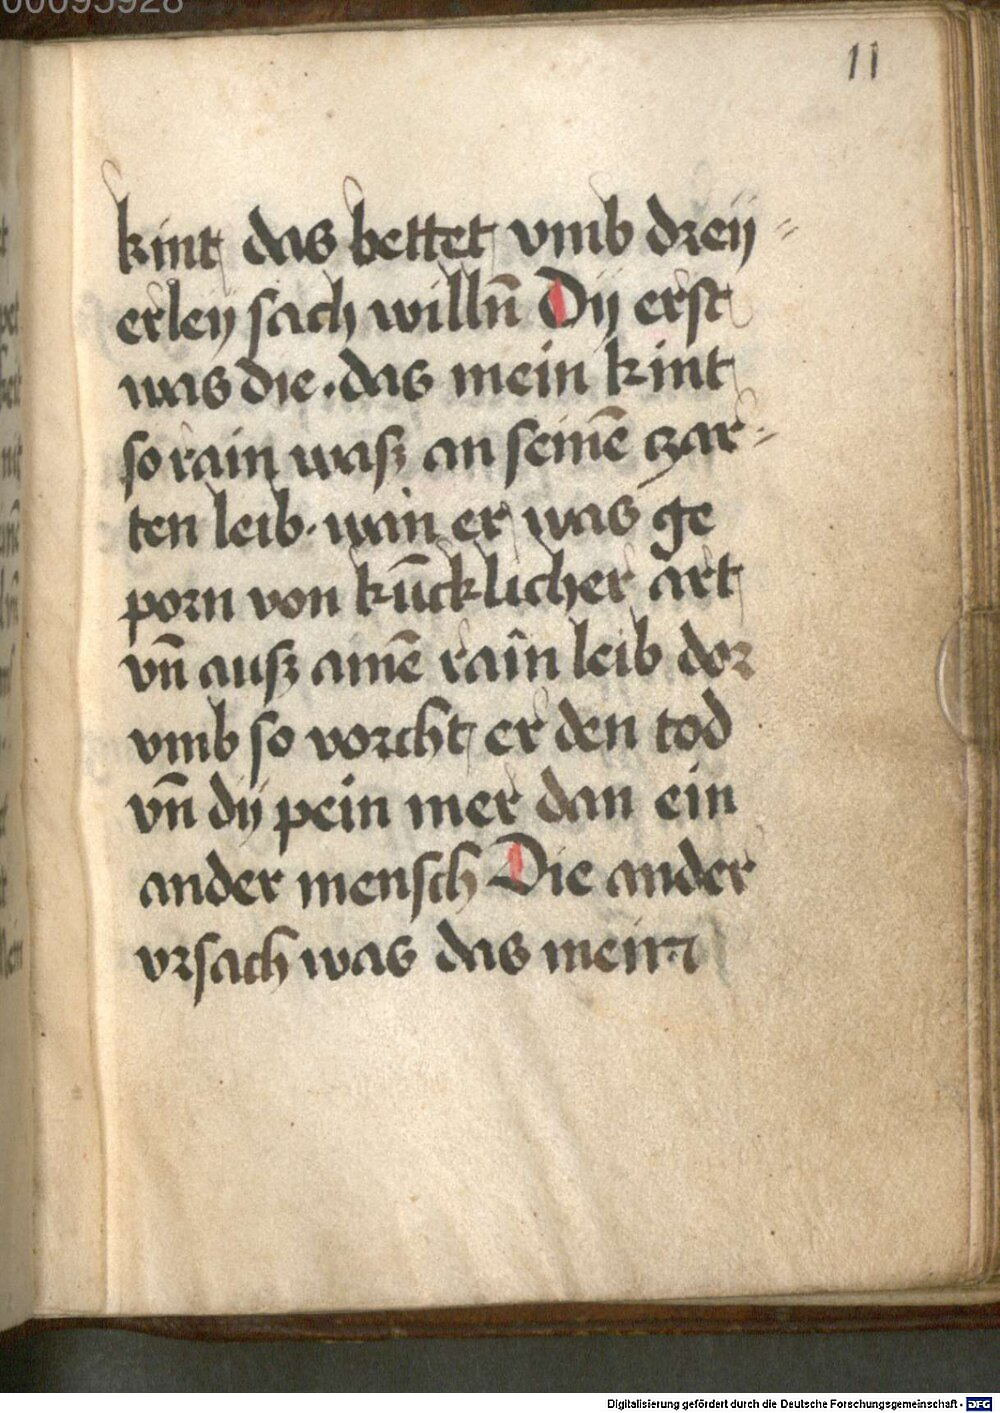 11
kint das bettet vmb dreÿ=
erleÿ sach willn̄ Dÿ erst
was die.das mein kint
so rain wasz an seinē czar=
ten leib. wan er was ge
porn von kūcklicher art
vn̄ ausz ainē rain leib dor
vmb so vorcht er den tod
vn̄ dÿ pein mer dan ein
ander mensch Die ander
vrsach was das mein
Digitalisierung gefördert durch die Deutsche Forschungsgemeinschaft - DFG